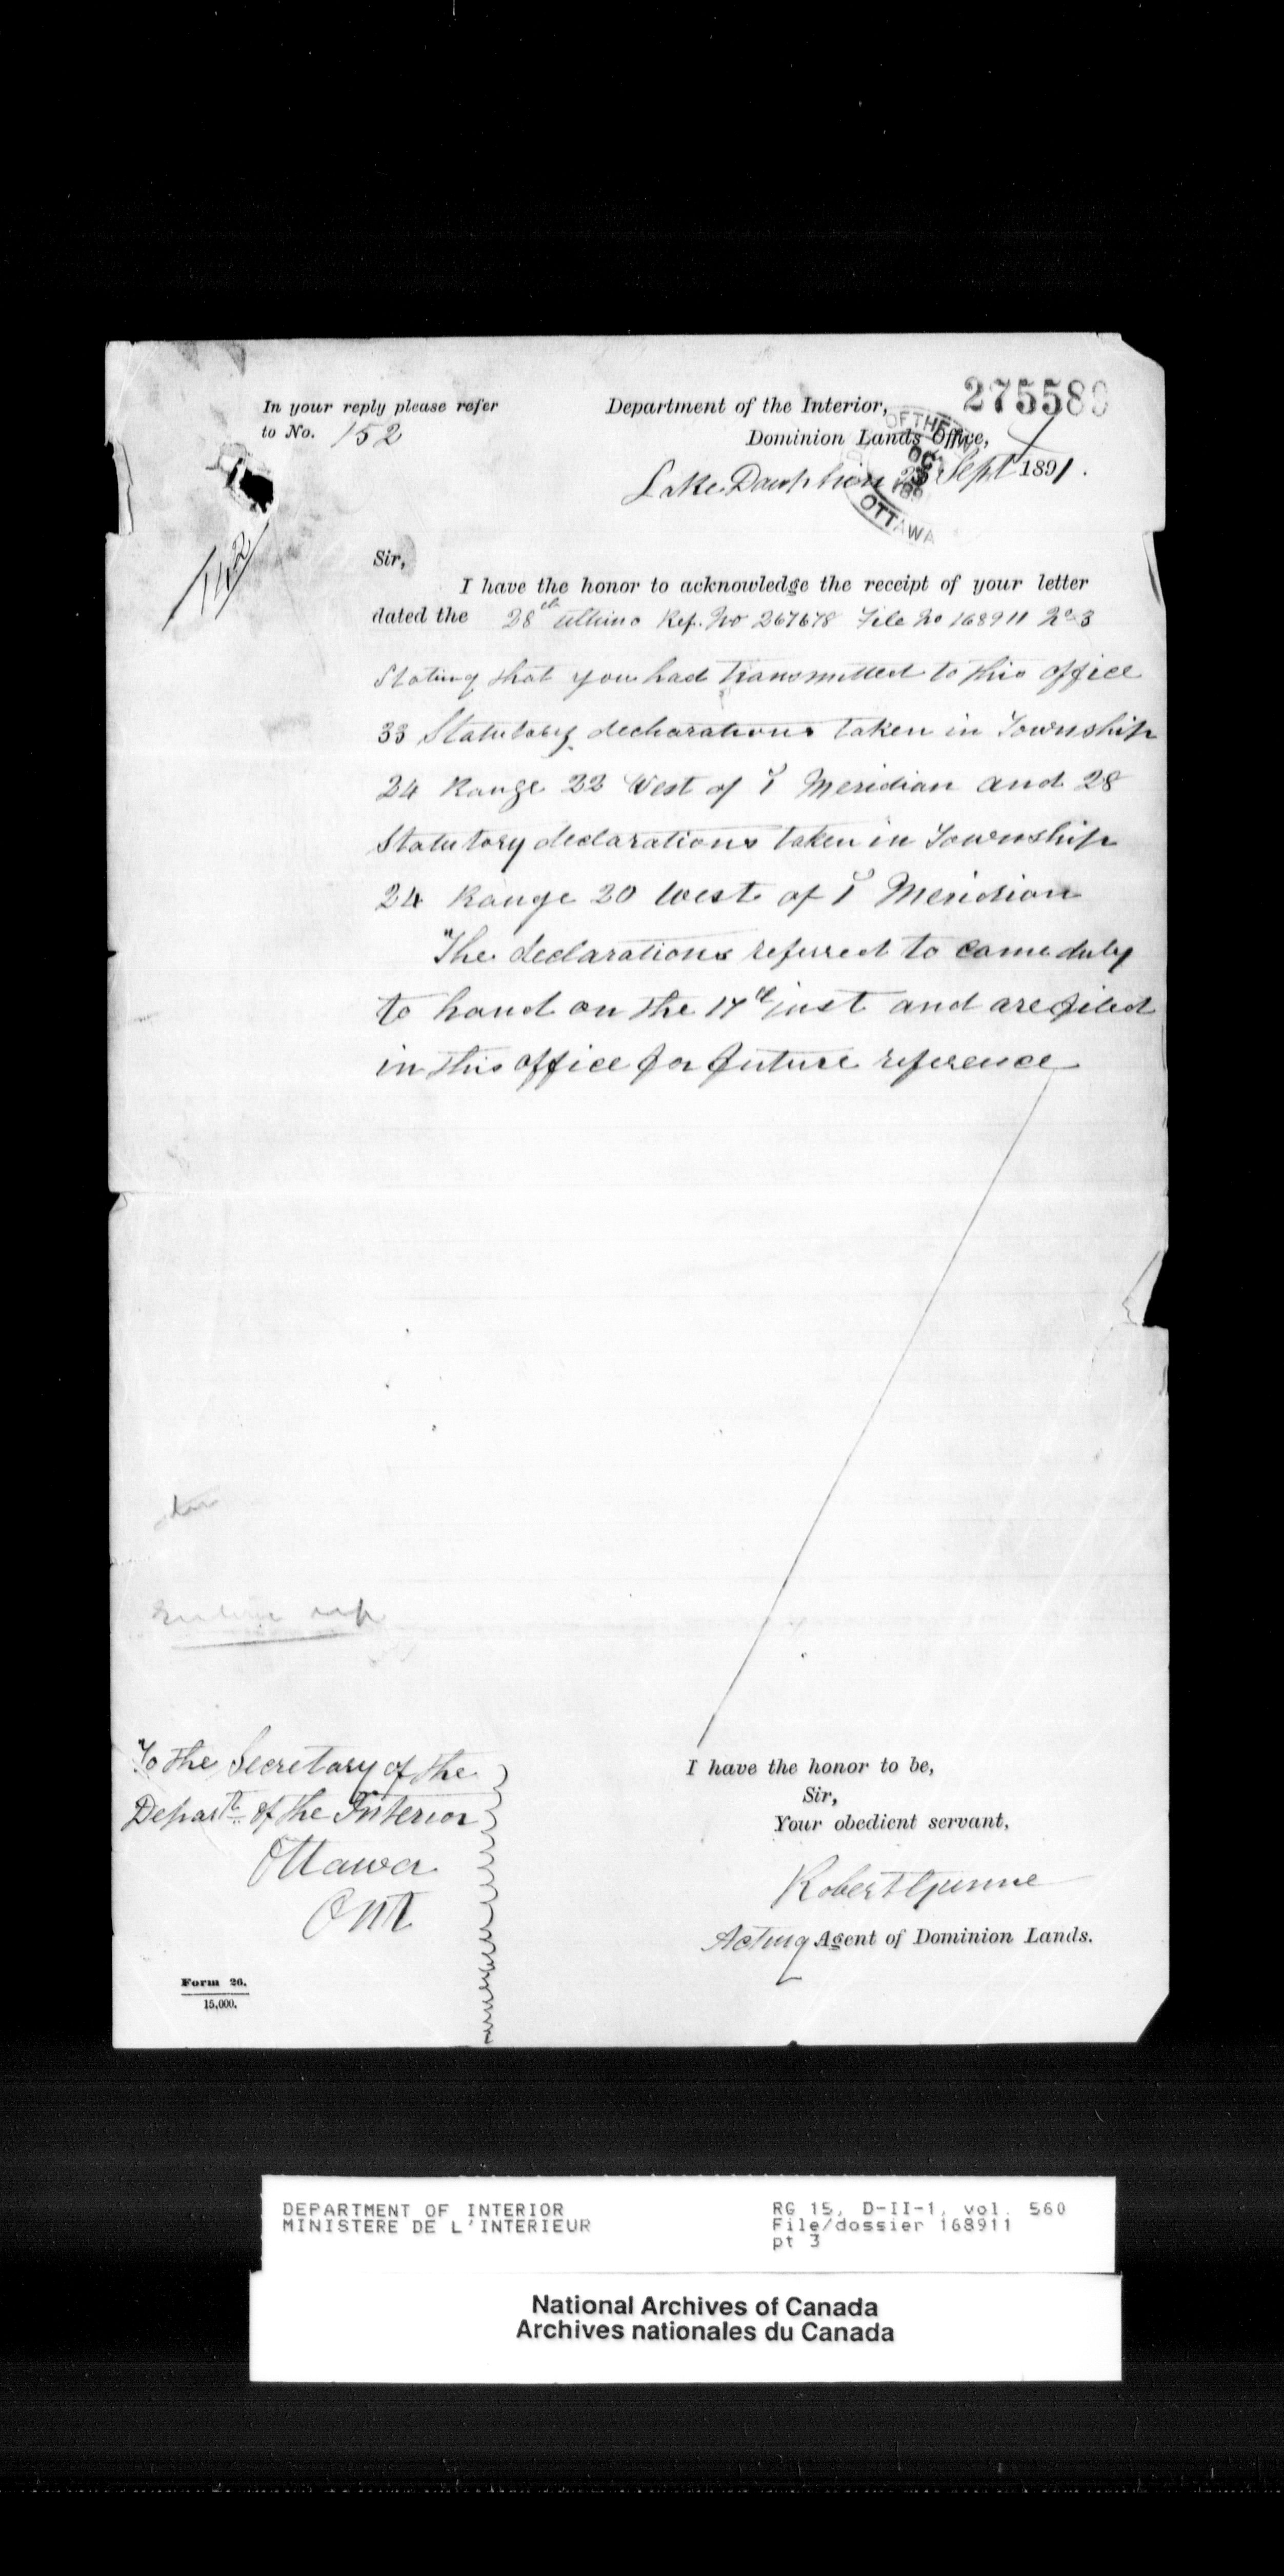 275580
In your reply please refer
to No. 152
Department of the Interior,
Dominion Lands Office,
Lake Dauphin Sept 1891.
OF THE
OC
OTTAWA
Sir,
I have the honor to acknowledge the receipt of your letter
dated the 28th Ultimo Ref. No 267678 File No 168911 No 3
Stating that you had transmitted to this office
33 Statutory declarations taken in Township
24 Range 22 West of 1 Meridian and 28
Statutory declarations taken in Township
24 Range 20 West of 1 Meridian
The declarations referred to came duly
to hand on the 17th inst and are filed
in this office for future reference
To the Secretary of the
Depart. of the Interior
Ottawa
Ont
I have the honor to be,
Sir,
Your obedient servant,
Robert Gunne
Acting Agent of Dominion Lands.
Form 26.
15,000.
DEPARTMENT OF INTERIOR
MINISTERE DE L'INTERIEUR
RG 15, D-II-1, vol. 560
File/dossier 168911
pt 3
National Archives of Canada
Archives nationales du Canada